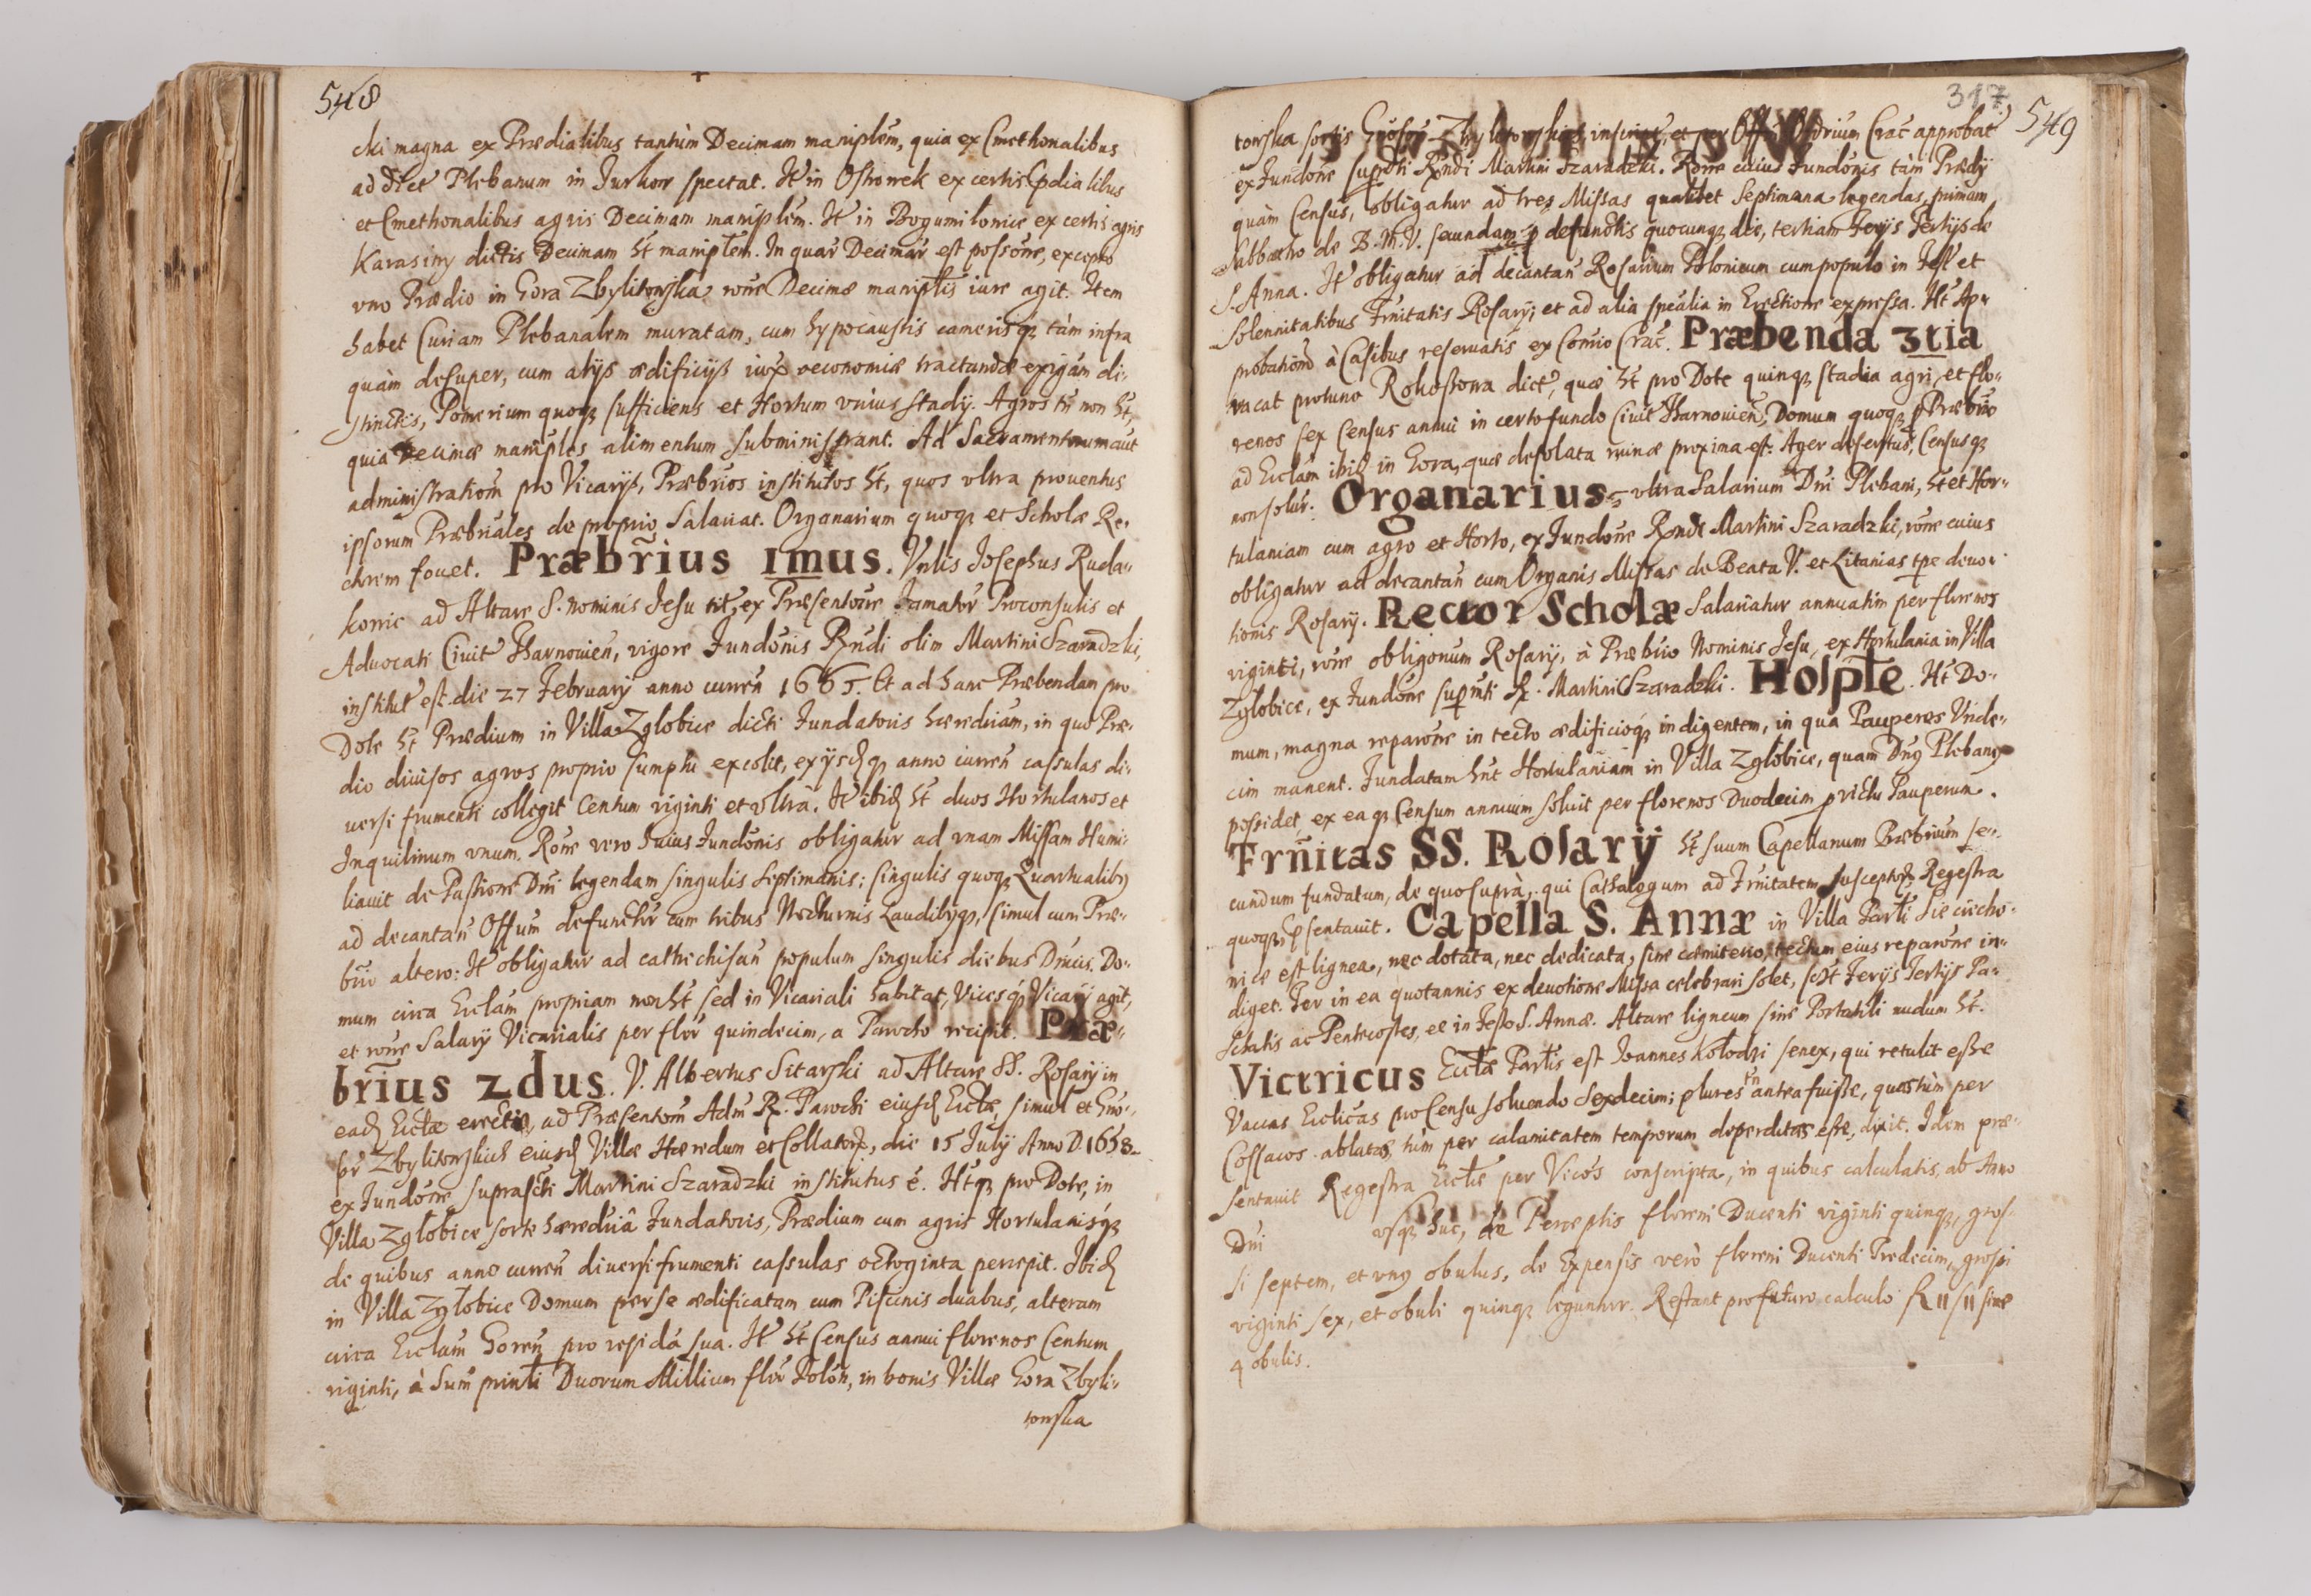 548
cki magna ex Prædialibus tantùm Decimam maniplem, quia ex Cmethonalibus
ad dict Plebanum in Jurkow spectat. It in Ostrowek ex certis Pdialibus
et Cmethonalibus agris Decimam maniplem. It in Bogumilowice ex certis agris
Karasiny dictis Decimam ht maniplem. In quar Decimar est possone, excepto
vno Prædio in Gora Zbylitowska rone Decimæ maniplis iure agit. Item
habet Curiam Plebanalem muratam, cum hypocaustis camerisq tàm infra
quàm desuper, cum alijs ædificijs iux oeconomiæ tractandæ exigam di-
stinctis, Pomerium quoq sufficiens et Hortum vnius stadij. Agros tn non ht,
quia Decimæ maniples alimentum subministrant. Ad Sacramentorum aut
administrationem pro Vicarijs, Præbrios institutos ht, quos vltra prouentus
ipsorum Præbriales de proprio Salariat. Organarium quoq et Scholæ Re-
ctorem fouet. Præbrius 1mus. Vnlis Josephus Ruda-
kowic ad Altare S. Nominis Jesu tit, ex Præsentone Famator Proconsulis et
Aduocati Ciuit Tharnouien, vigore Fundonis Rndi olim Martini Szaradzki,
institut est die 27 February anno curren 1665. Et ad hanc Præbendam pro
Dote ht Prædium in Villa Zglobice dicti Fundatoris hæreduiam, in quo Præ-
dio diuisos agros proprio sumptu excolit, ex ijsdq anno curren cassulas di-
uersi frumenti collegit Centum viginti et vltra. It ibid ht duos Hortulanos et
Inquilinum vnum. Rone vero huius Fundonis obligatur ad vnam Missam Humi-
liauit de Passione Dni legendam singulis Septimanis; singulis quoq Quartualibus
ad decantan Offum defunctor cum tribus Nocturnis Laudibusq, simul cum Præ-
brio altero: It obligatur ad cathechisan populum singulis diebus Dnicis. Do-
mum circa Ecclam propriam non ht, sed in Vicariali habitat, Vicesq Vicarij agit,
et rone Salarij Vicarialis per flor quindecim, a Parocho recipit. Præ-
brius 2dus. V. Albertus Sitarski ad Altare SS. Rosarij in
ead Eccla erectio, ad Præsentom Adm R. Parochi eiusd Ecclæ, simul et Gno-
sor Zbylitowskich eiusd Villæ Hæredum et Collator, die 15 July Anno D. 1658.
ex Fundone suprascti Martini Szaradzki institutus é. Htq pro Dote, in
Villa Zglobice sorte hæreduiâ Fundatoris, Prædium cum agris Hortulanisq
de quibus anno curren diuersi frumenti cassulas octoginta percepit. Ibid
in Villa Zglobice Domum per se ædificatam cum Piscinis duabus, alteram
circa Ecclam Goren pro residâ sua. It ht Census annui florenos Centum
viginti, à Sum printi Duorum Millium flor Polon, in bonis Villæ Gora Zbyli-
towska
317
549
towska sortis Gnosor Zbylitowskich inscript, et per Offm Ordrium Crac approbat
ex Fundone suprdti Rndi Martini Szaradzki. Rone cuius Fundonis tàm Prædij
quàm Census, obligatur ad tres Missas qualibet Septimana legendas, primam
Sabbatho de B. M. V. secundam p defunctis quocunq die, tertiam Ferijs Tertijs de
S. Anna. It obligatur ad decantan Rosarium Polonicum cum populo in Fest et
Solennitatibus Frnitatis Rosarij; et ad alia spcialia in Erectione expressa. Ht Ap-
probationem à Casibus reseruatis ex Comio Crac. Præbenda 3tia
vacat protunc Rokossowa dict, quæ ht pro Dote quinq stadia agri, et flo-
renos sex Census annui in certo fundo Ciuit Tharnouien, Domum quoq p Præbrio
ad Ecclam ibid in Gora, quæ desolata ruinæ proxima est. Ager desertus, Censusq
non soluit. Organarius vltra Salarium Dni Plebani, ht et Hor-
tulaniam cum agro et Horto, ex Fundone Rndi Martini Szaradzki, rone cuius
obligatur ad decantan cum Organis Missas de Beata V. et Litanias tpe deuo-
tionis Rosarij. Rector Scholæ Salariatur annuatim per florenos
viginti, rone obligonum Rosarij, à Præbrio Nominis Jesu, ex Hortulania in Villa
Zglobice, ex Fundone suprmti R. Martini Szaradzki. Hosple. Ht Do-
mum, magna reparone in tecto ædificioq indigentem, in qua Pauperes Vnde-
cim manent. Fundatam hnt Hortulaniam in Villa Zglobice, quam Dnus Plebanus
possidet, ex eaq Censum annuum soluit per florenos Duodecim p victu Pauperum.
Frnitas SS. Rosarij ht suum Capellanum Præbrium se-
cundum fundatum, de quo suprà, qui Cathalogum ad Frnitatem susceptor Regestra
quoq, psentauit. Capella S. Annæ in Villa Parti Sieciecho-
nice est lignea, nec dotata, nec dedicata, sine cæmiterio, tectum eius reparone in-
diget. Ter in ea quotannis ex deuotione Missa celebrari solet, sclt Ferijs Tertijs Pa-
schalis ac Pentecostes, et in Festo S. Annæ. Altare ligneum sine Portatili nudum ht.
Victricus Ecclæ Partis est Joannes Kołodzi senex, qui retulit esse
Vaccas Ecclicas pro Censu soluendo Sexdecim; plures tn antea fuisse, quas tùm per
Cossacos ablatas, tùm per calamitatem temporum deperditas esse, dixit. Idem præ-
sentauit Regestra Ecclæ per Vicos conscripta, in quibus calculatis, ab Anno
Dni usq huc, de Perceptis floreni Ducenti viginti quinq, gros-
si septem, et vnus obulus, de Expensis verò floreni Ducenti Tredecim, grossi
viginti sex, et obuli quinq leguntur. Restant pro futuro calculo fl 11 / 11 sine
4 obulis.